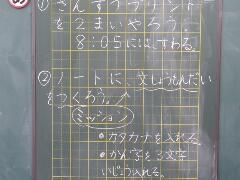 ① さんすうプリント
を2まいやろう。
8:05にはすわる。
② ノートに、文しょうもんだい
をつくろう。
ミッション
・カタカナを入れる。
・かん字を3文字
いじょう入れる。